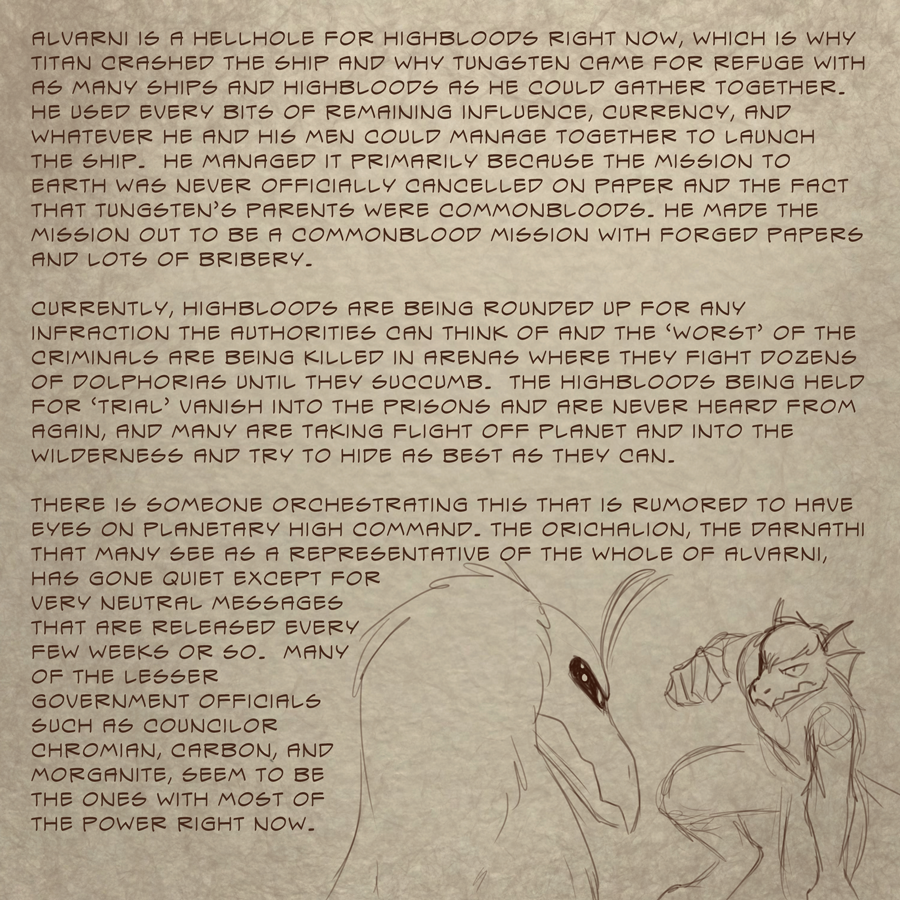 ALVARNI IS A HELLHOLE FOR HIGHBLOODS RIGHT NOW, WHICH IS WHY
TITAN CRASHED THE SHIP AND WHY TUNGSTEN CAME FOR REFUGE WITH
AS MANY SHIPS AND HIGHBLOODS AS HE COULD GATHER TOGETHER.
HE USED EVERY BITS OF REMAINING INFLUENCE, CURRENCY, AND
WHATEVER HE AND HIS MEN COULD MANAGE TOGETHER TO LAUNCH
THE SHIP. HE MANAGED IT PRIMARILY BECAUSE THE MISSION TO
EARTH WAS NEVER OFFICIALLY CANCELLED ON PAPER AND THE FACT
THAT TUNGSTEN'S PARENTS WERE COMMONBLOODS. HE MADE THE
MISSION OUT TO BE A COMMONBLOOD MISSION WITH FORGED PAPERS
AND LOTS OF BRIBERY.

CURRENTLY, HIGHBLOODS ARE BEING ROUNDED UP FOR ANY
INFRACTION THE AUTHORITIES CAN THINK OF AND THE 'WORST' OF THE
CRIMINALS ARE BEING KILLED IN ARENAS WHERE THEY FIGHT DOZENS
OF DOLPHORIAS UNTIL THEY SUCCUMB. THE HIGHBLOODS BEING HELD
FOR 'TRIAL' VANISH INTO THE PRISONS AND ARE NEVER HEARD FROM
AGAIN, AND MANY ARE TAKING FLIGHT OFF PLANET AND INTO THE
WILDERNESS AND TRY TO HIDE AS BEST AS THEY CAN.

THERE IS SOMEONE ORCHESTRATING THIS THAT IS RUMORED TO HAVE
EYES ON PLANETARY HIGH COMMAND. THE ORICHALION, THE DARNATHI
THAT MANY SEE AS A REPRESENTATIVE OF THE WHOLE OF ALVARNI,
HAS GONE QUIET EXCEPT FOR
VERY NEUTRAL MESSAGES
THAT ARE RELEASED EVERY
FEW WEEKS OR SO. MANY
OF THE LESSER
GOVERNMENT OFFICIALS
SUCH AS COUNCILOR
CHROMIAN, CARBON, AND
MORGANITE, SEEM TO BE
THE ONES WITH MOST OF
THE POWER RIGHT NOW.